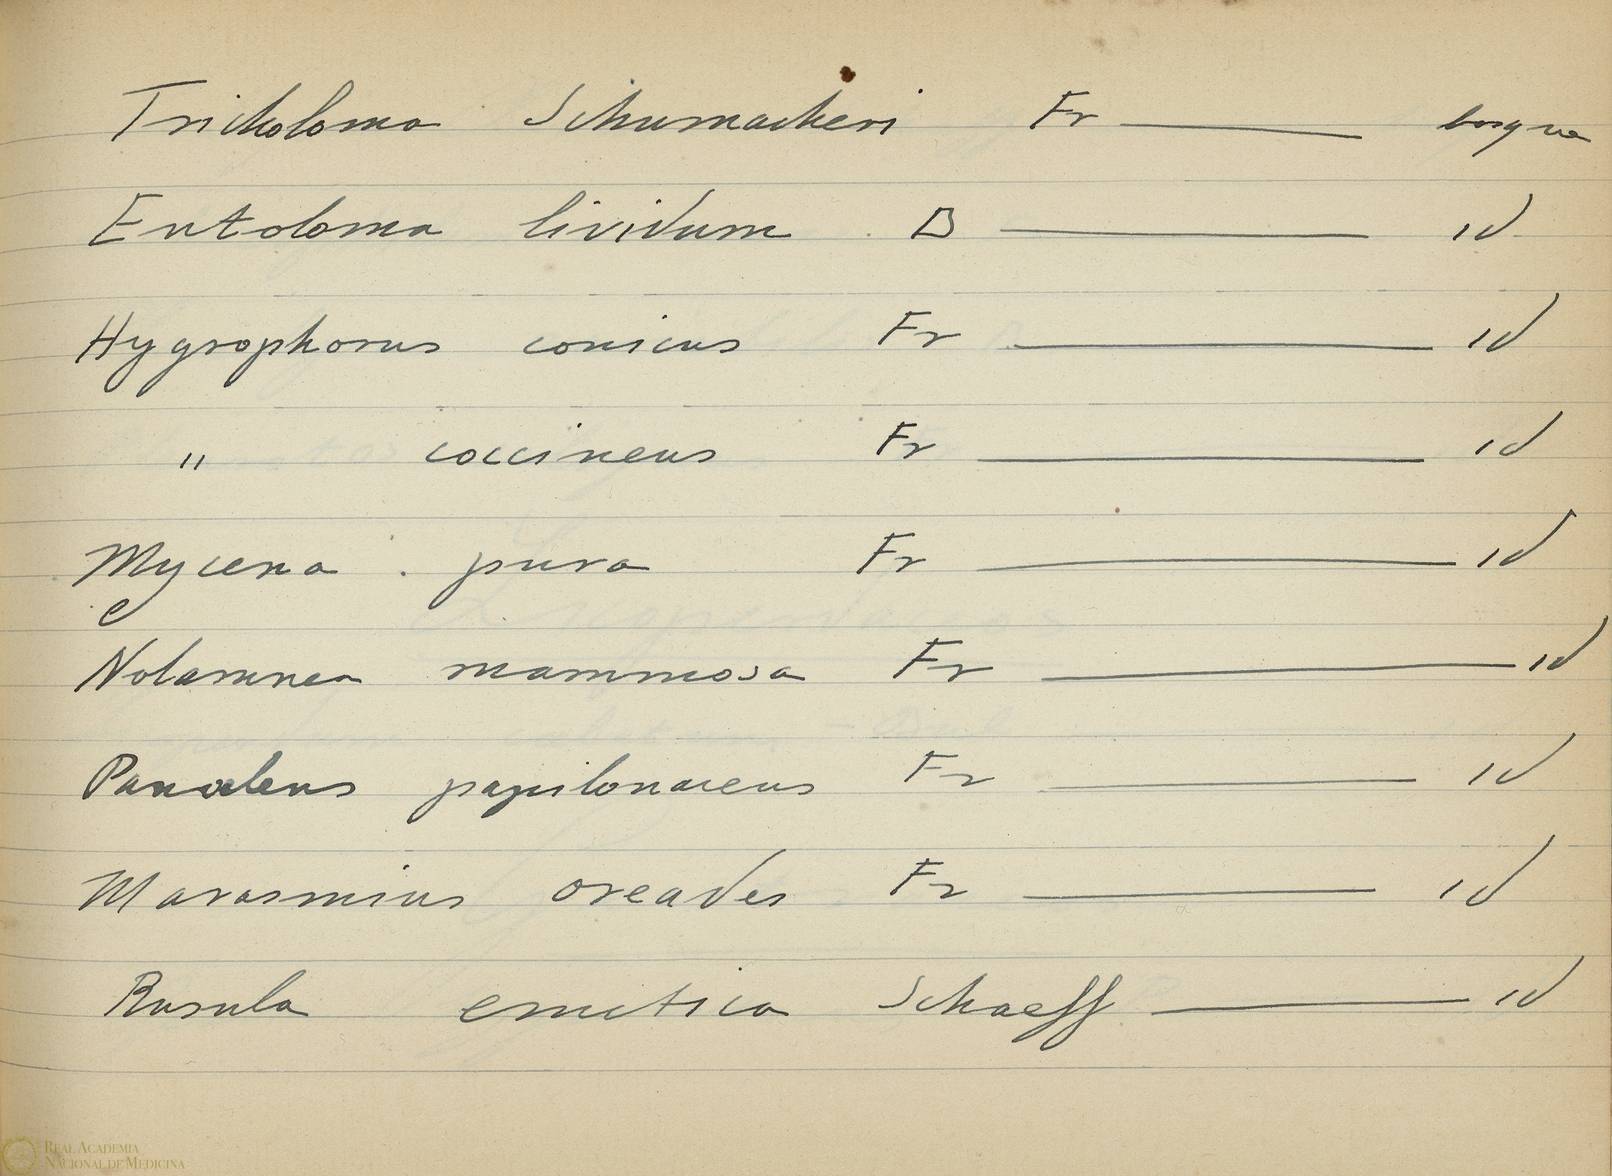 Tricholoma Schumackeri Fr — bosque
Entoloma lividum B — id
Hygrophorus conicus Fr — id
" coccineus Fr — id
Mycena pura Fr — id
Nolamnea mammosa Fr — id
Panaleus papilonaceus Fr — id
Marasmius oreades Fr — id
Rusula emetica Schaeff — id
REAL ACADEMIA
NACIONAL DE MEDICINA